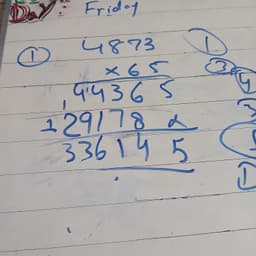 Day: Friday
① 4873
×65
44365
+29178×
336145